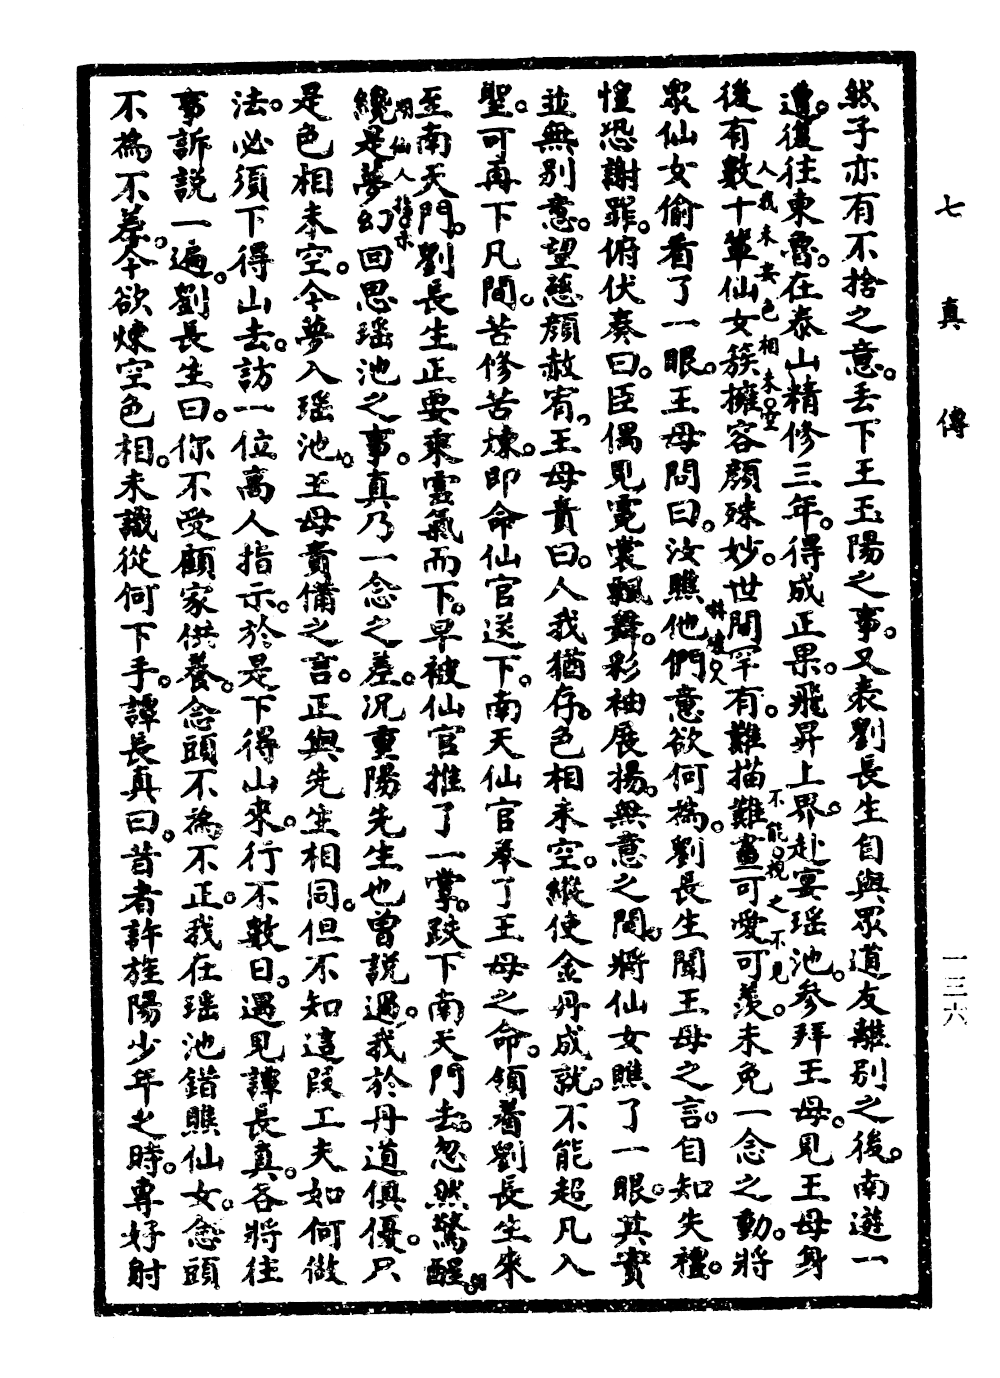 七真傳
一三六
然子亦有不捨之意。丟下王玉陽之事。又表劉長生自與眾道友離別之後。南遊一
遭。復往東魯。在泰山精修三年。得成正果。飛昇上界。赴宴瑤池。參拜王母。見王母身
人我未忘色相未空
不能視之不見
後有數十輩仙女簇擁容顏殊妙。世間罕有。難描難畫可愛可羨。未免一念之動。將
眾仙女偷看了一眼。王母問曰。汝瞧他們意欲何為。劉長生聞王母之言。自知失禮。
惶恐謝罪。俯伏奏曰。臣偶見霓裳飄舞。彩袖展揚。無意之間。將仙女瞧了一眼。其實
並無別意。望慈顏赦宥。王母責曰。人我猶存。色相未空。縱使金丹成就。不能超凡入
聖。可再下凡間。苦修苦煉。即命仙官送下。南天仙官奉了王母之命。領着劉長生來
至南天門。劉長生正要乘雲氣而下。早被仙官推了一掌。跌下南天門去。忽然驚醒。
明仙人指示
纔是夢幻回思瑤池之事。真乃一念之差。況重陽先生也曾說過。我於丹道俱優。只
是色相未空。今夢入瑤池。王母責備之言。正與先生相同。但不知這段工夫如何做
法。必須下得山去。訪一位高人指示。於是下得山來。行不數日。遇見譚長真。各將往
事訴說一遍。劉長生曰。你不受顧家供養。念頭不為不正。我在瑤池錯瞧仙女。念頭
不為不差。今欲煉空色相。未識從何下手。譚長真曰。昔者許旌陽少年之時。專好射